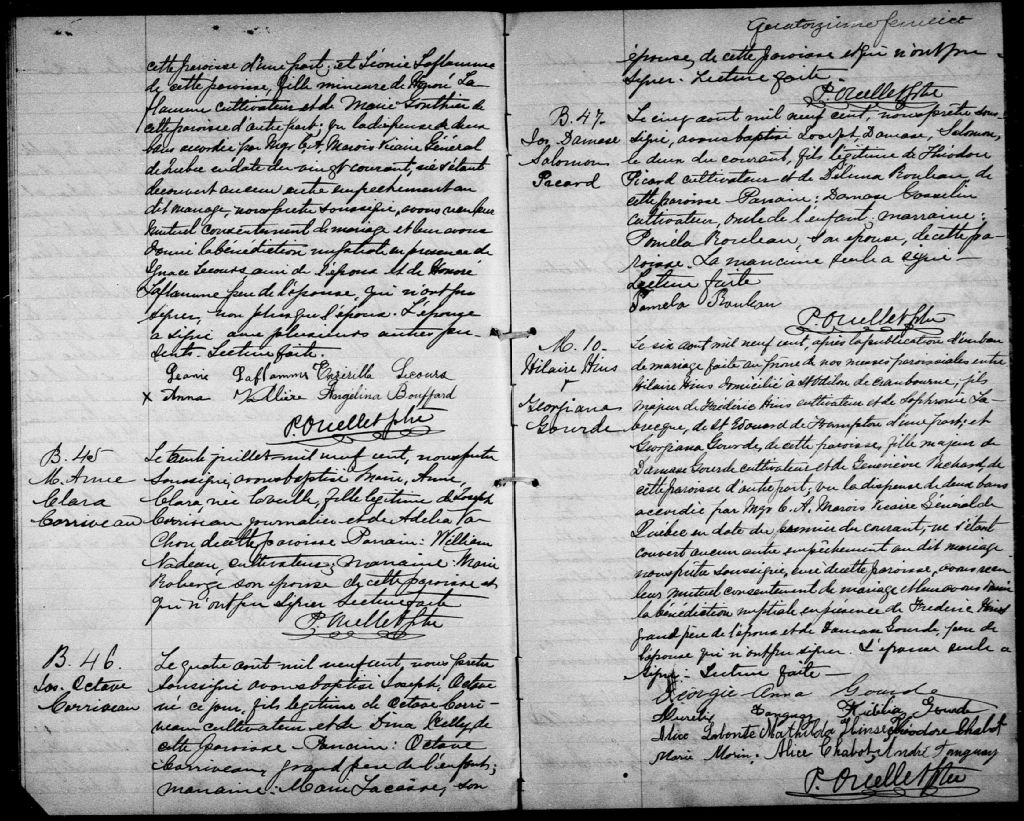 cette paroisse d'une part; et Léonie Laflamme
de cette paroisse, fille mineure de Honoré La-
flamme cultivateur et de Marie Gonthier de
cette paroisse d'autre part; vu la dispense de deux
bans accordée par Mgr C. A. Marois Vicaire Général
de Québec en date du vingt courant, ne s'étant
découvert aucun autre empêchement au
dit mariage, nous prêtre soussigné, avons reçu leur
mutuel consentement de mariage et leur avons
donné la bénédiction nuptiale en présence de
Ignace Lecours ami de l'époux et de Honoré
Laflamme père de l'épouse, qui n'ont pu
signer, non plus que l'époux. L'épouse
a signé avec plusieurs autres pa-
rents. Lecture faite.
Laflamme Lecours
x Anna Vallière Angélina Bouffard
P. Ouellet ptre
B. 45
M. Anne
Clara
Corriveau
Le trente juillet mil neuf cent, nous prêtre
soussigné, avons baptisé Marie, Anne,
Clara, née la veille, fille légitime de Joseph
Corriveau journalier et de Adélia Va-
chon de cette paroisse Parrain: William
Nadeau, cultivateur; marraine: Marie
Roberge son épouse de cette paroisse et
qui n'ont pu signer Lecture faite
P. Ouellet ptre
B. 46.
Jos. Octave
Corriveau
Le quatre août mil neuf cent, nous prêtre
soussigné avons baptisé Joseph, Octave
né ce jour, fils légitime de Octave Corri-
veau cultivateur et de Kelly de
cette paroisse. Parrain: Octave
Corriveau, grand père de l'enfant;
marraine: Marie Lacasse, son
Quatorzième feuillet
épouse, de cette paroisse et qui n'ont pu
signer. Lecture faite.
P. Ouellet ptre
B. 47.
Jos. Damase
Salomon
Picard
Le cinq août mil neuf cent, nous prêtre sous-
signé, avons baptisé Joseph, Damase, Salomon,
le deux du courant, fils légitime de Théodore
Picard cultivateur et de Délima Rouleau, de
cette paroisse Parrain: Damase Gosselin
cultivateur, oncle de l'enfant. marraine:
Paméla Rouleau, son épouse, de cette pa-
roisse. La marraine seule a signé
Lecture faite
Pamela Rouleau
P. Ouellet ptre
M. 10
Hilaire Hins
&
Georgiana
Gourde
Le six août mil neuf cent, après la publication d'un ban
de mariage faite au prône de nos messes paroissiales entre
Hilaire Hins domicilié à St Odilon de Cranbourne, fils
majeur de Frédéric Hins cultivateur et de Sophronie La-
brecque, de St Edouard de Frampton d'une part; et
Georgiana Gourde, de cette paroisse, fille majeure de
Damase Gourde cultivateur et de Geneviève Béchard, de
cette paroisse d'autre part; vu la dispense de deux bans
accordée par Mgr C. A. Marois Vicaire Général de
Québec en date du premier du courant, ne s'étant
couvert aucun autre empêchement au dit mariage
nous prêtre soussigné, curé de cette paroisse, avons reçu
leur mutuel consentement de mariage et leur avons donné
la bénédiction nuptiale en présence de Frédéric Hins
grand père de l'époux et de Damase Gourde, père de
l'épouse qui n'ont pu signer. L'épouse seule a
signé. Lecture faite
Georgie Anna Gourde
Tanguay Gourde
Alice Labonté Mathilda Hins Théodore Chabot
Marie Morin, Alice Chabot, André Tanguay
P. Ouellet ptre